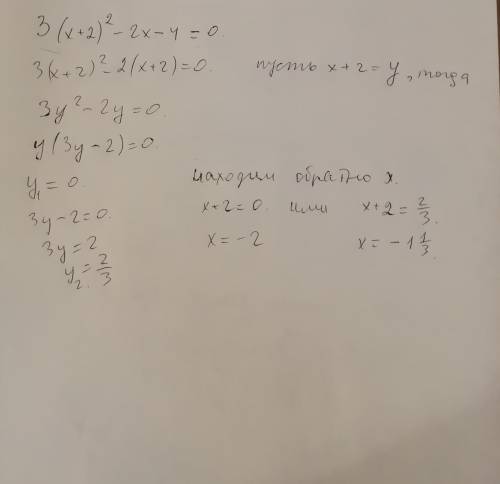 3(x+2)² - 2x - 4 = 0.
3(x+2)² - 2(x+2) = 0. пусть x+2 = y, тогда
3y² - 2y = 0.
y(3y - 2) = 0.
y₁ = 0. находим обратно x.
3y - 2 = 0. x+2 = 0. или x+2 = 2/3.
3y = 2 x = -2 x = -1 1/3.
y₂ = 2/3